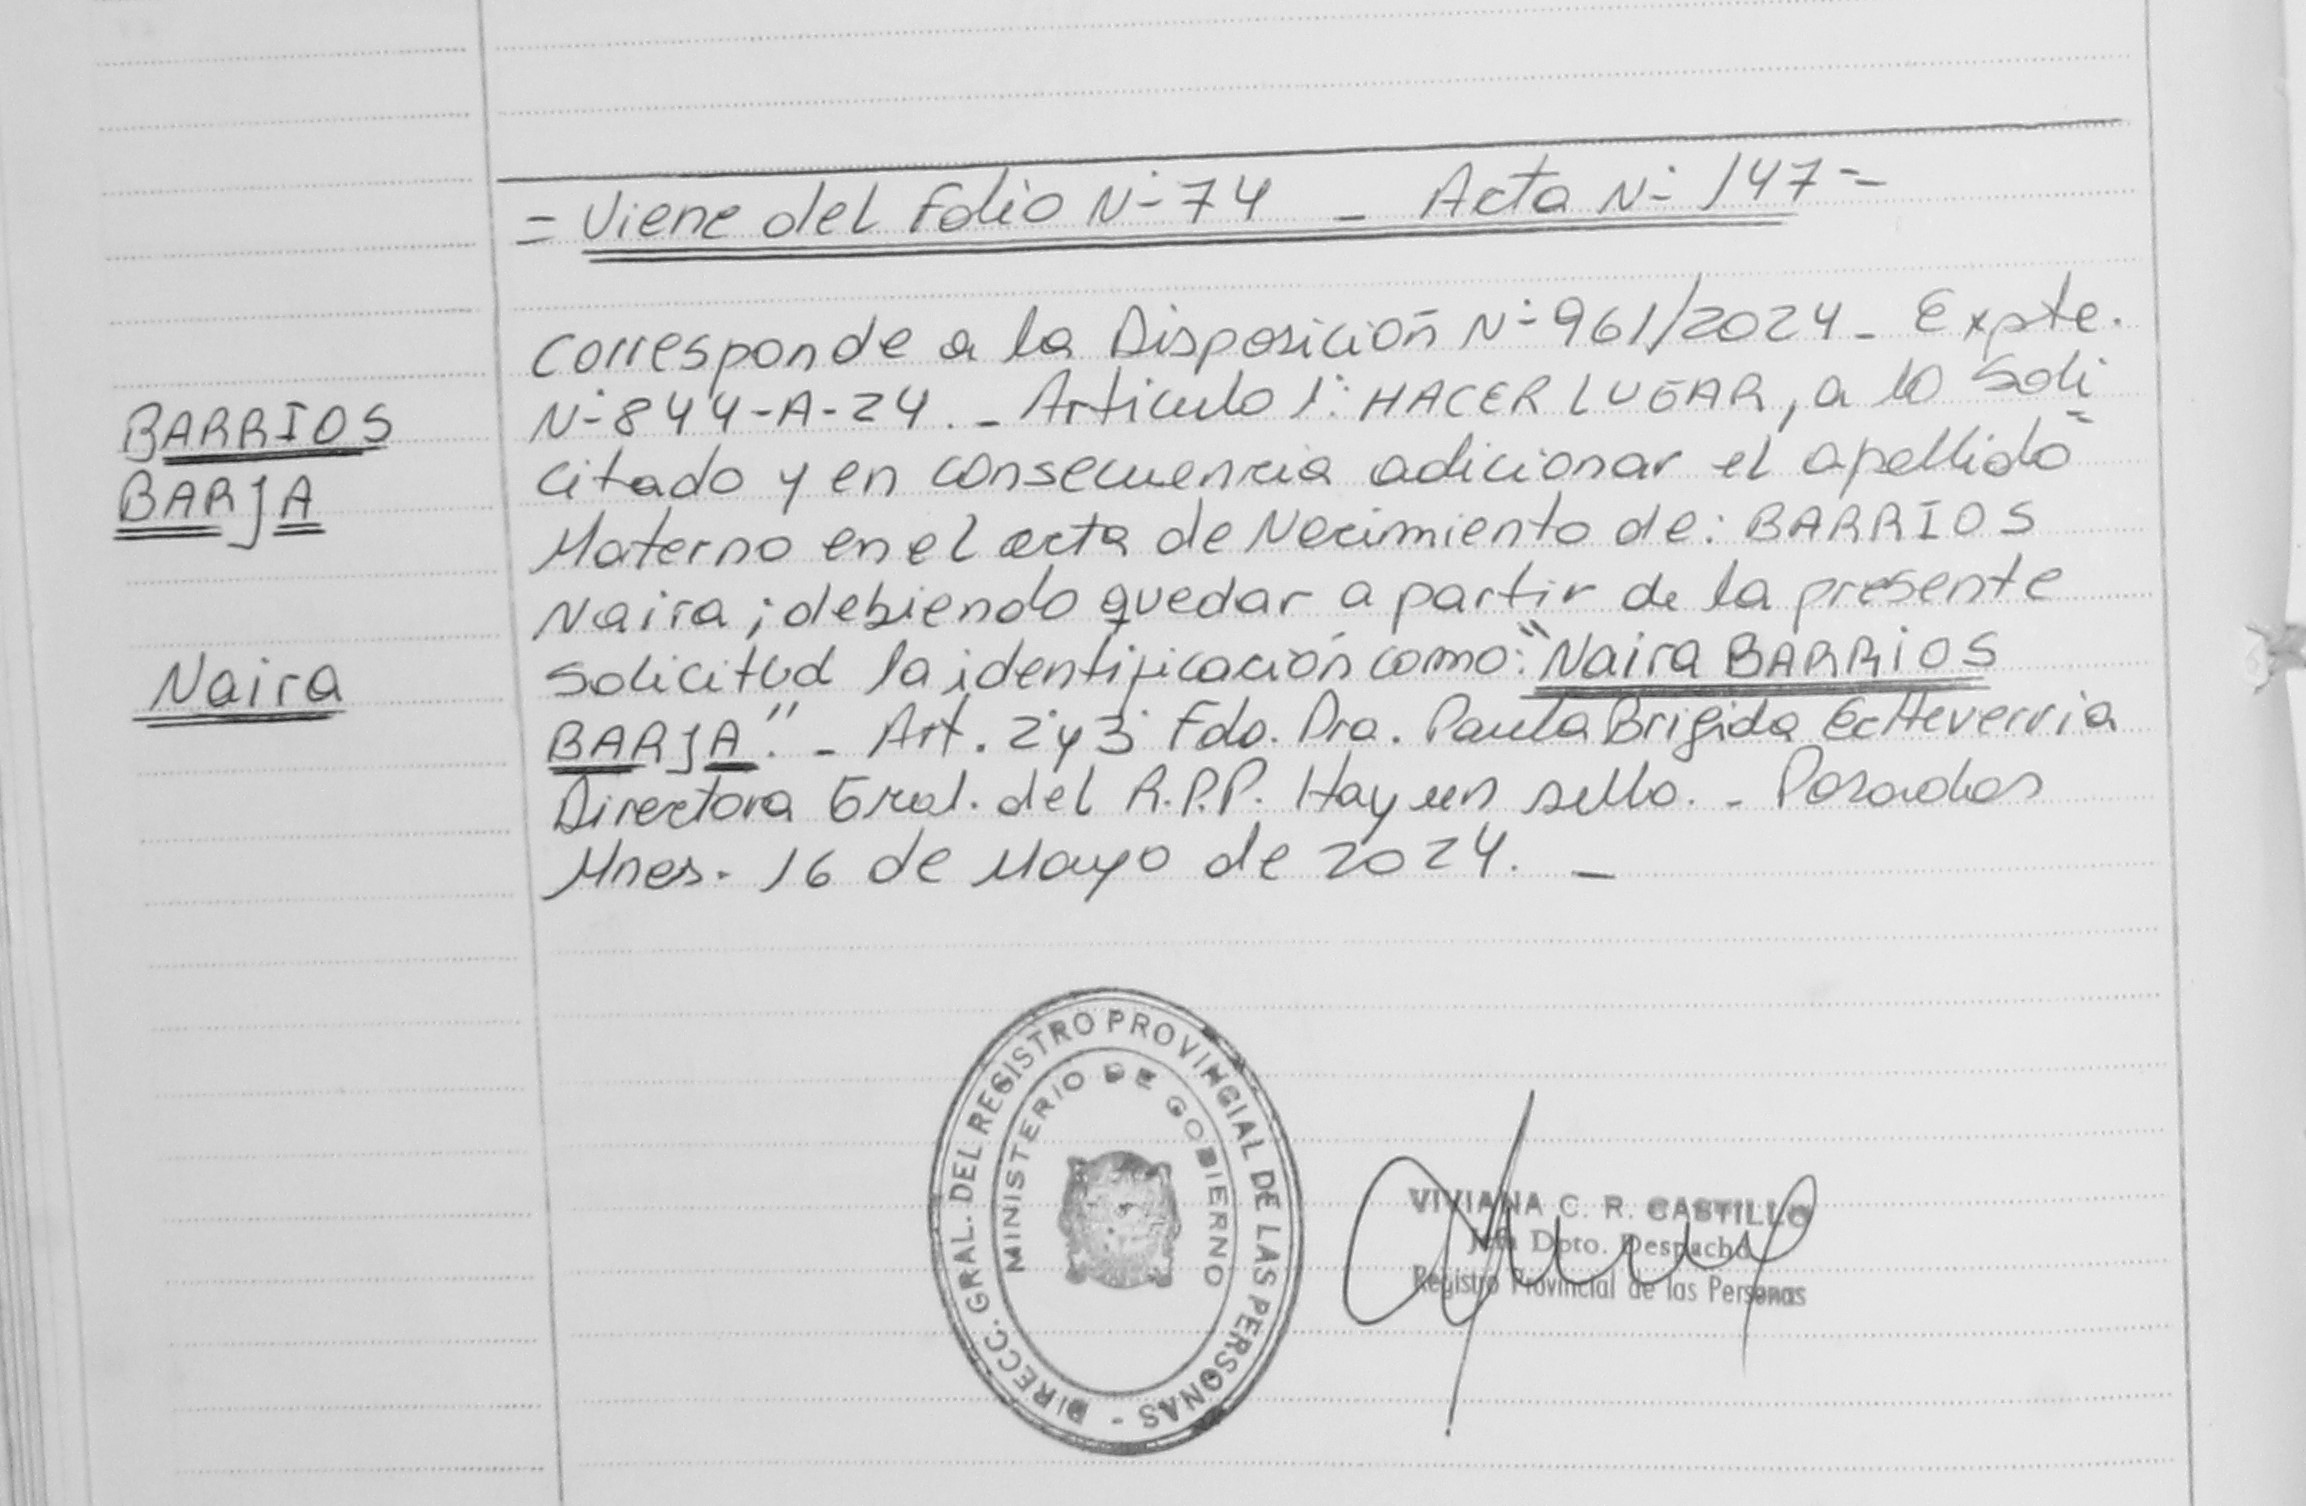 = Viene del Folio Nº 74 - Acta Nº 147 =
Corresponde a la Disposición Nº 961/2024 - Expte.
BARRIOS
Nº 844-A-24. - Articulo 1º: HACER LUGAR, a lo Soli
BARJA
citado y en consecuencia adicionar el apellido
Materno en el acta de Nacimiento de: BARRIOS
Naira; debiendo quedar a partir de la presente
Naira
solicitud la identificación como: "Naira BARRIOS
BARJA". - Art. 2º y 3º Fdo. Dra. Paula Brigida Echeverria
Directora Gral. del R.P.P. Hay un sello. - Posadas
Mnes. 16 de Mayo de 2024. -
DIRECC. GRAL. DEL REGISTRO PROVINCIAL DE LAS PERSONAS -
MINISTERIO DE GOBIERNO
VIVIANA C. R. CASTILLO
Jefa Dpto. Despacho
Registro Provincial de las Personas